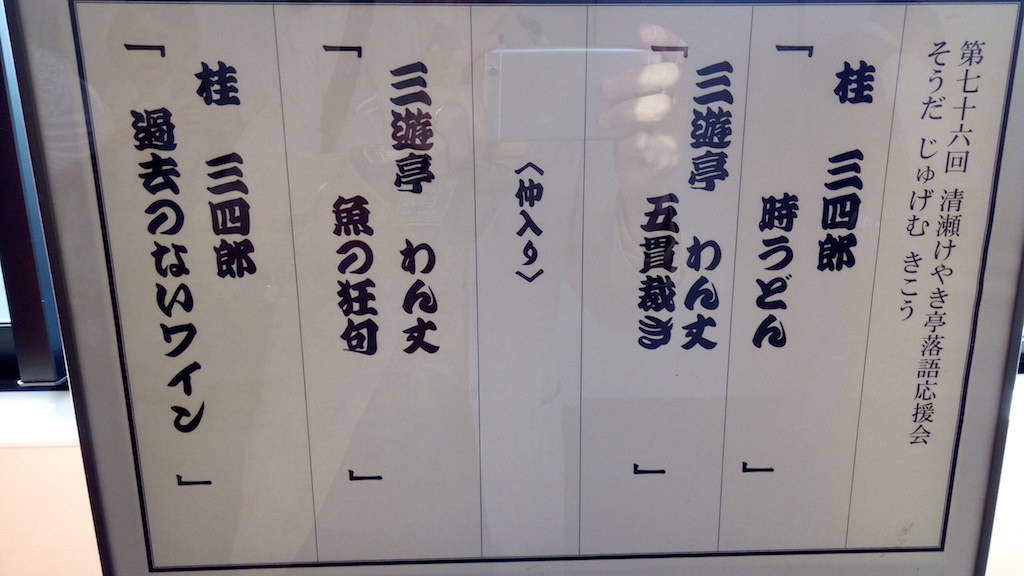 第七十六回 清瀬けやき亭落語応援会
そうだ じゅげむ きこう
桂 三四郎
「 時うどん 」
三遊亭 わん丈
「 五貫裁き 」
〈仲入り〉
三遊亭 わん丈
「 魚の狂句 」
桂 三四郎
「 過去のないワイン 」